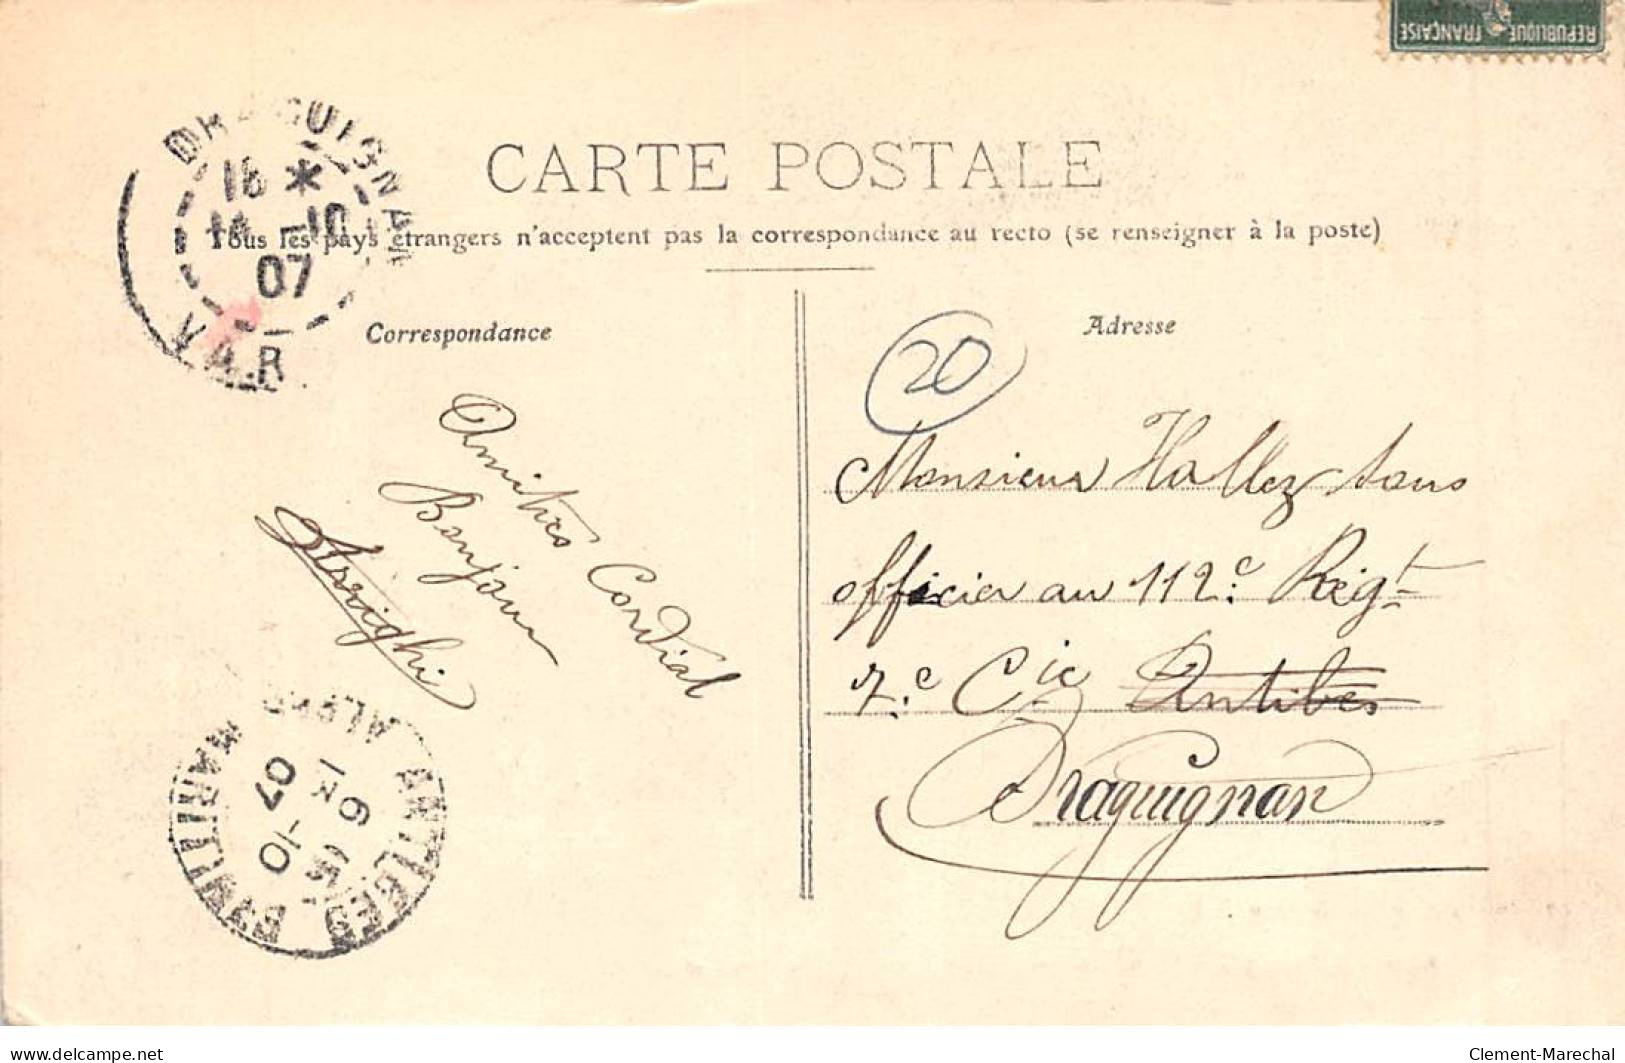 REPUBLIQUE FRANÇAISE
CARTE POSTALE
Tous les pays étrangers n'acceptent pas la correspondance au recto (se renseigner à la poste)
DRAGUIGNAN
16 *
14 -10
07
VAR
Correspondance
Amitiés Cordial
Bonjour
Arrighi
ANTIBES
ALPES MARITIMES
15 -10
07
Adresse
20
Monsieur Hallez sous
officier au 112e. Régt
7.e Cie Antibes
Draguignan
www.delcampe.net
Clement-Marechal